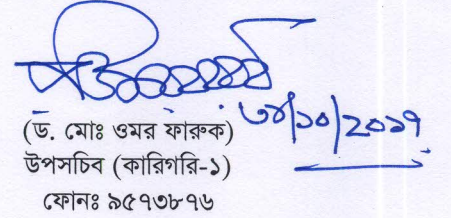 ৩০/১০/২০১৭
(ড. মোঃ ওমর ফারুক)
উপসচিব (কারিগরি-১)
ফোনঃ ৯৫৭৩৮৭৬